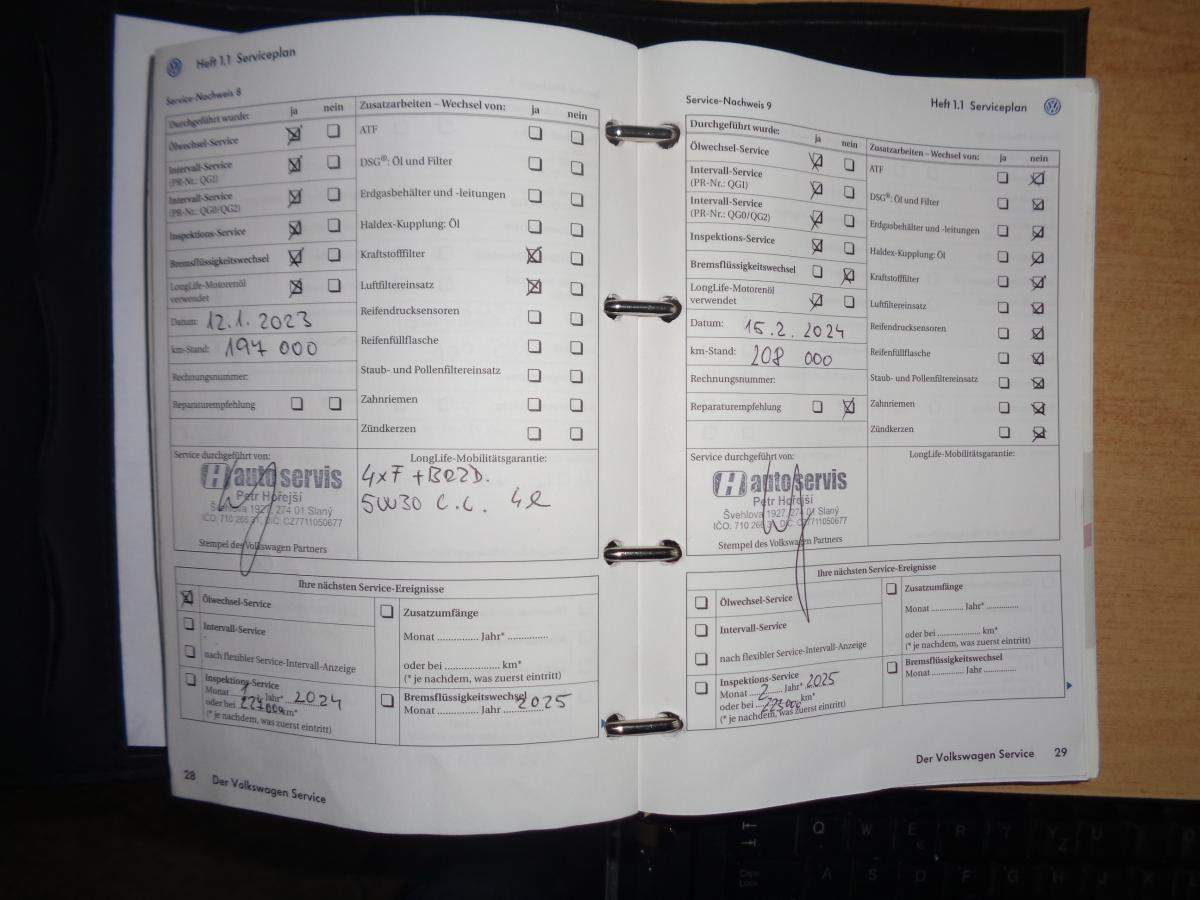 Heft 1.1 Serviceplan
Service-Nachweis 8
Durchgeführt wurde: ja nein
Ölwechsel-Service
Intervall-Service
(PR-Nr.: QG1)
Intervall-Service
(PR-Nr.: QG0/QG2)
Inspektions-Service
Bremsflüssigkeitswechsel
LongLife-Motorenöl
verwendet
Datum: 12.1.2023
km-Stand: 197 000
Rechnungsnummer:
Reparaturempfehlung
Zusatzarbeiten – Wechsel von: ja nein
ATF
DSG®: Öl und Filter
Erdgasbehälter und -leitungen
Haldex-Kupplung: Öl
Kraftstofffilter
Luftfiltereinsatz
Reifendrucksensoren
Reifenfüllflasche
Staub- und Pollenfiltereinsatz
Zahnriemen
Zündkerzen
Service durchgeführt von:
H autoservis
Petr Hořejší
Švehlova 1927, 274 01 Slaný
IČO: 710 266 31, DIČ: CZ7711050677
Stempel des Volkswagen Partners
LongLife-Mobilitätsgarantie:
4xF + BRZD.
5W30 C.C. 4l
Ihre nächsten Service-Ereignisse
Ölwechsel-Service
Intervall-Service
nach flexibler Service-Intervall-Anzeige
Inspektions-Service
Monat 1 Jahr* 2024
oder bei km*
(* je nachdem, was zuerst eintritt)
Zusatzumfänge
Monat .............. Jahr* .............
oder bei .................... km*
(* je nachdem, was zuerst eintritt)
Bremsflüssigkeitswechsel
Monat .............. Jahr 2025
28 Der Volkswagen Service
Service-Nachweis 9
Heft 1.1 Serviceplan
Durchgeführt wurde: ja nein
Ölwechsel-Service
Intervall-Service
(PR-Nr.: QG1)
Intervall-Service
(PR-Nr.: QG0/QG2)
Inspektions-Service
Bremsflüssigkeitswechsel
LongLife-Motorenöl
verwendet
Datum: 15.2.2024
km-Stand: 208 000
Rechnungsnummer:
Reparaturempfehlung
Zusatzarbeiten – Wechsel von: ja nein
ATF
DSG®: Öl und Filter
Erdgasbehälter und -leitungen
Haldex-Kupplung: Öl
Kraftstofffilter
Luftfiltereinsatz
Reifendrucksensoren
Reifenfüllflasche
Staub- und Pollenfiltereinsatz
Zahnriemen
Zündkerzen
Service durchgeführt von:
H autoservis
Petr Hořejší
Švehlova 1927, 274 01 Slaný
IČO: 710 266 31, DIČ: CZ7711050677
Stempel des Volkswagen Partners
LongLife-Mobilitätsgarantie:
Ihre nächsten Service-Ereignisse
Ölwechsel-Service
Intervall-Service
nach flexibler Service-Intervall-Anzeige
Inspektions-Service
Monat 2 Jahr* 2025
oder bei km*
(* je nachdem, was zuerst eintritt)
Zusatzumfänge
Monat ............. Jahr* .............
oder bei .................. km*
(* je nachdem, was zuerst eintritt)
Bremsflüssigkeitswechsel
Monat ............. Jahr .............
Der Volkswagen Service 29
Q W E R T Y U
A S D F G H J